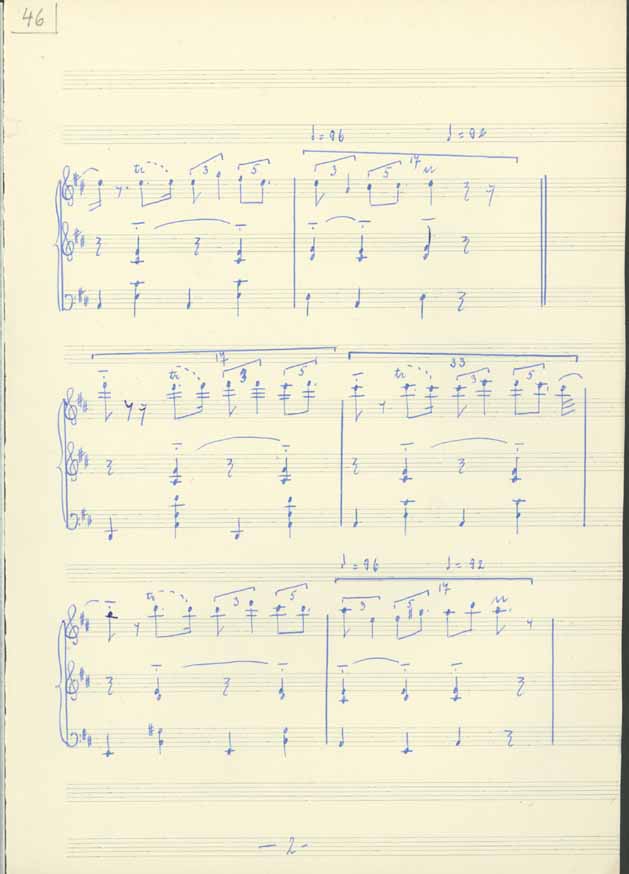 46
♩=96 ♩=92
17
tr 3 5 3 5
17 33
tr 3 5 tr 3 5
♩=96 ♩=92
17
tr 3 5 3 5
- 2 -